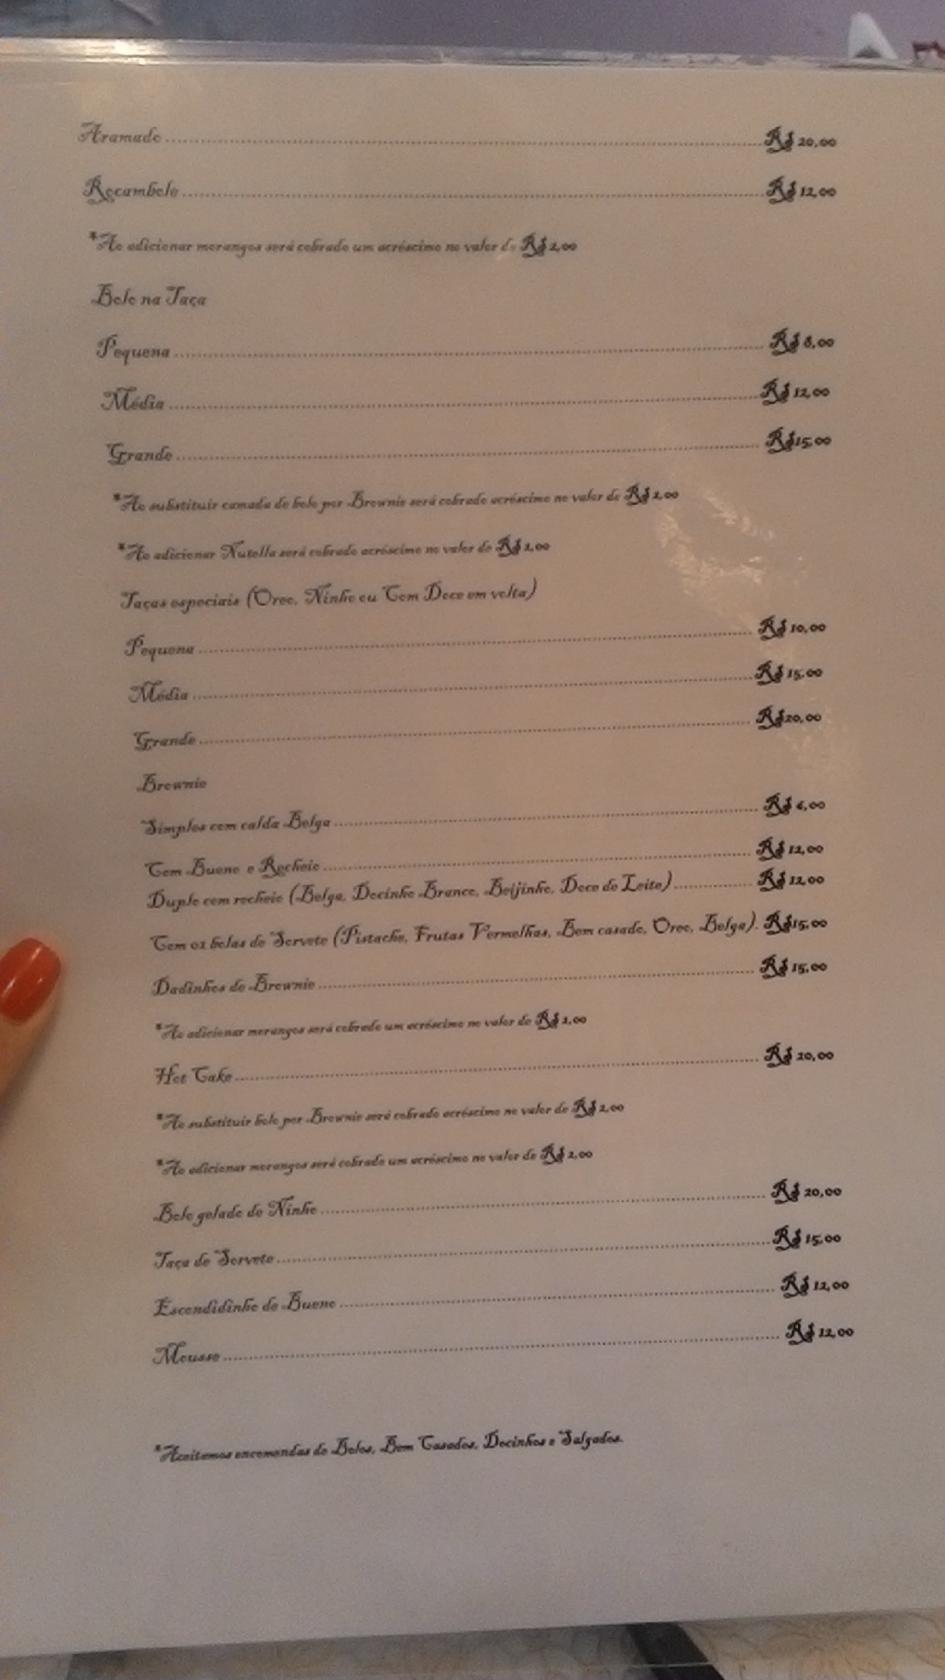 Aramado R$ 20,00
Rocambole R$ 12,00
*Ao adicionar morangos será cobrado um acréscimo no valor de R$ 2,00
Bolo na Taça
Pequena R$ 8,00
Média R$ 12,00
Grande R$15,00
*Ao substituir camada de bolo por Brownie será cobrado acréscimo no valor de R$ 2,00
*Ao adicionar Nutella será cobrado acréscimo no valor de R$ 2,00
Taças especiais (Oreo, Ninho ou Com Doce em volta)
Pequena R$ 10,00
Média R$ 15,00
Grande R$20,00
Brownie
Simples com calda Belga R$ 6,00
Com Bueno e Recheio R$ 12,00
Duplo com recheio (Belga, Docinho Branco, Beijinho, Doce de Leite) R$ 12,00
Com 02 bolas de Sorvete (Pistache, Frutas Vermelhas, Bem casado, Oreo, Belga). R$15,00
Dadinhos de Brownie R$ 15,00
*Ao adicionar morangos será cobrado um acréscimo no valor de R$ 2,00
Hot Cake R$ 20,00
*Ao substituir bolo por Brownie será cobrado acréscimo no valor de R$ 2,00
*Ao adicionar morangos será cobrado um acréscimo no valor de R$ 2,00
Bolo gelado de Ninho R$ 20,00
Taça de Sorvete R$ 15,00
Escondidinho de Bueno R$ 12,00
Mousse R$ 12,00
*Aceitamos encomendas de Bolos, Bem Casados, Docinhos e Salgados.